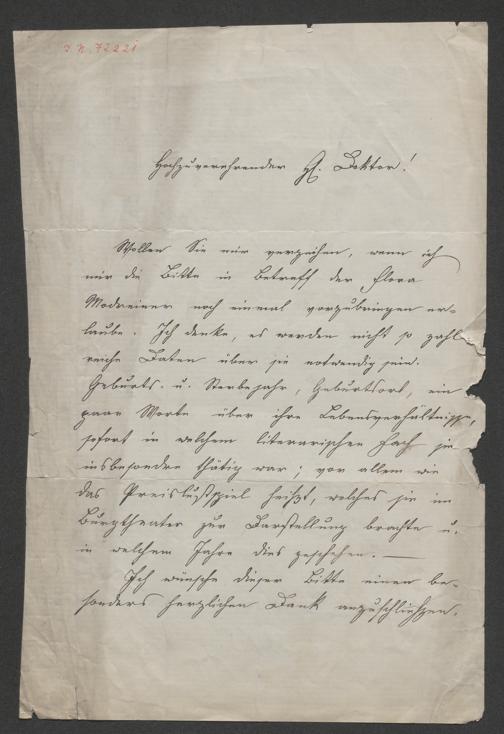 I.N. 72221
Hochzuverehrender H. Doktor!
Wollen Sie mir verzeihen, wenn ich
mir die Bitte in Betreff der Flora
noch einmal vorzubringen er-
laube. Ich denke, es werden nicht so zahl-
reiche Daten über sie notwendig sein.
Geburts- u. Sterbejahr, Geburtsort, ein
paar Worte über ihre Lebensverhältnisse,
sofort in welchem literarischen Fach sie
insbesondre thätig war; vor allem wie
das Preislustspiel heißt, welches sie im
Burgtheater zur Darstellung brachte u.
in welchem Jahre dies geschehen. —
Ich wünsche dieser Bitte einen be-
sonders herzlichen Dank anzuschließen.